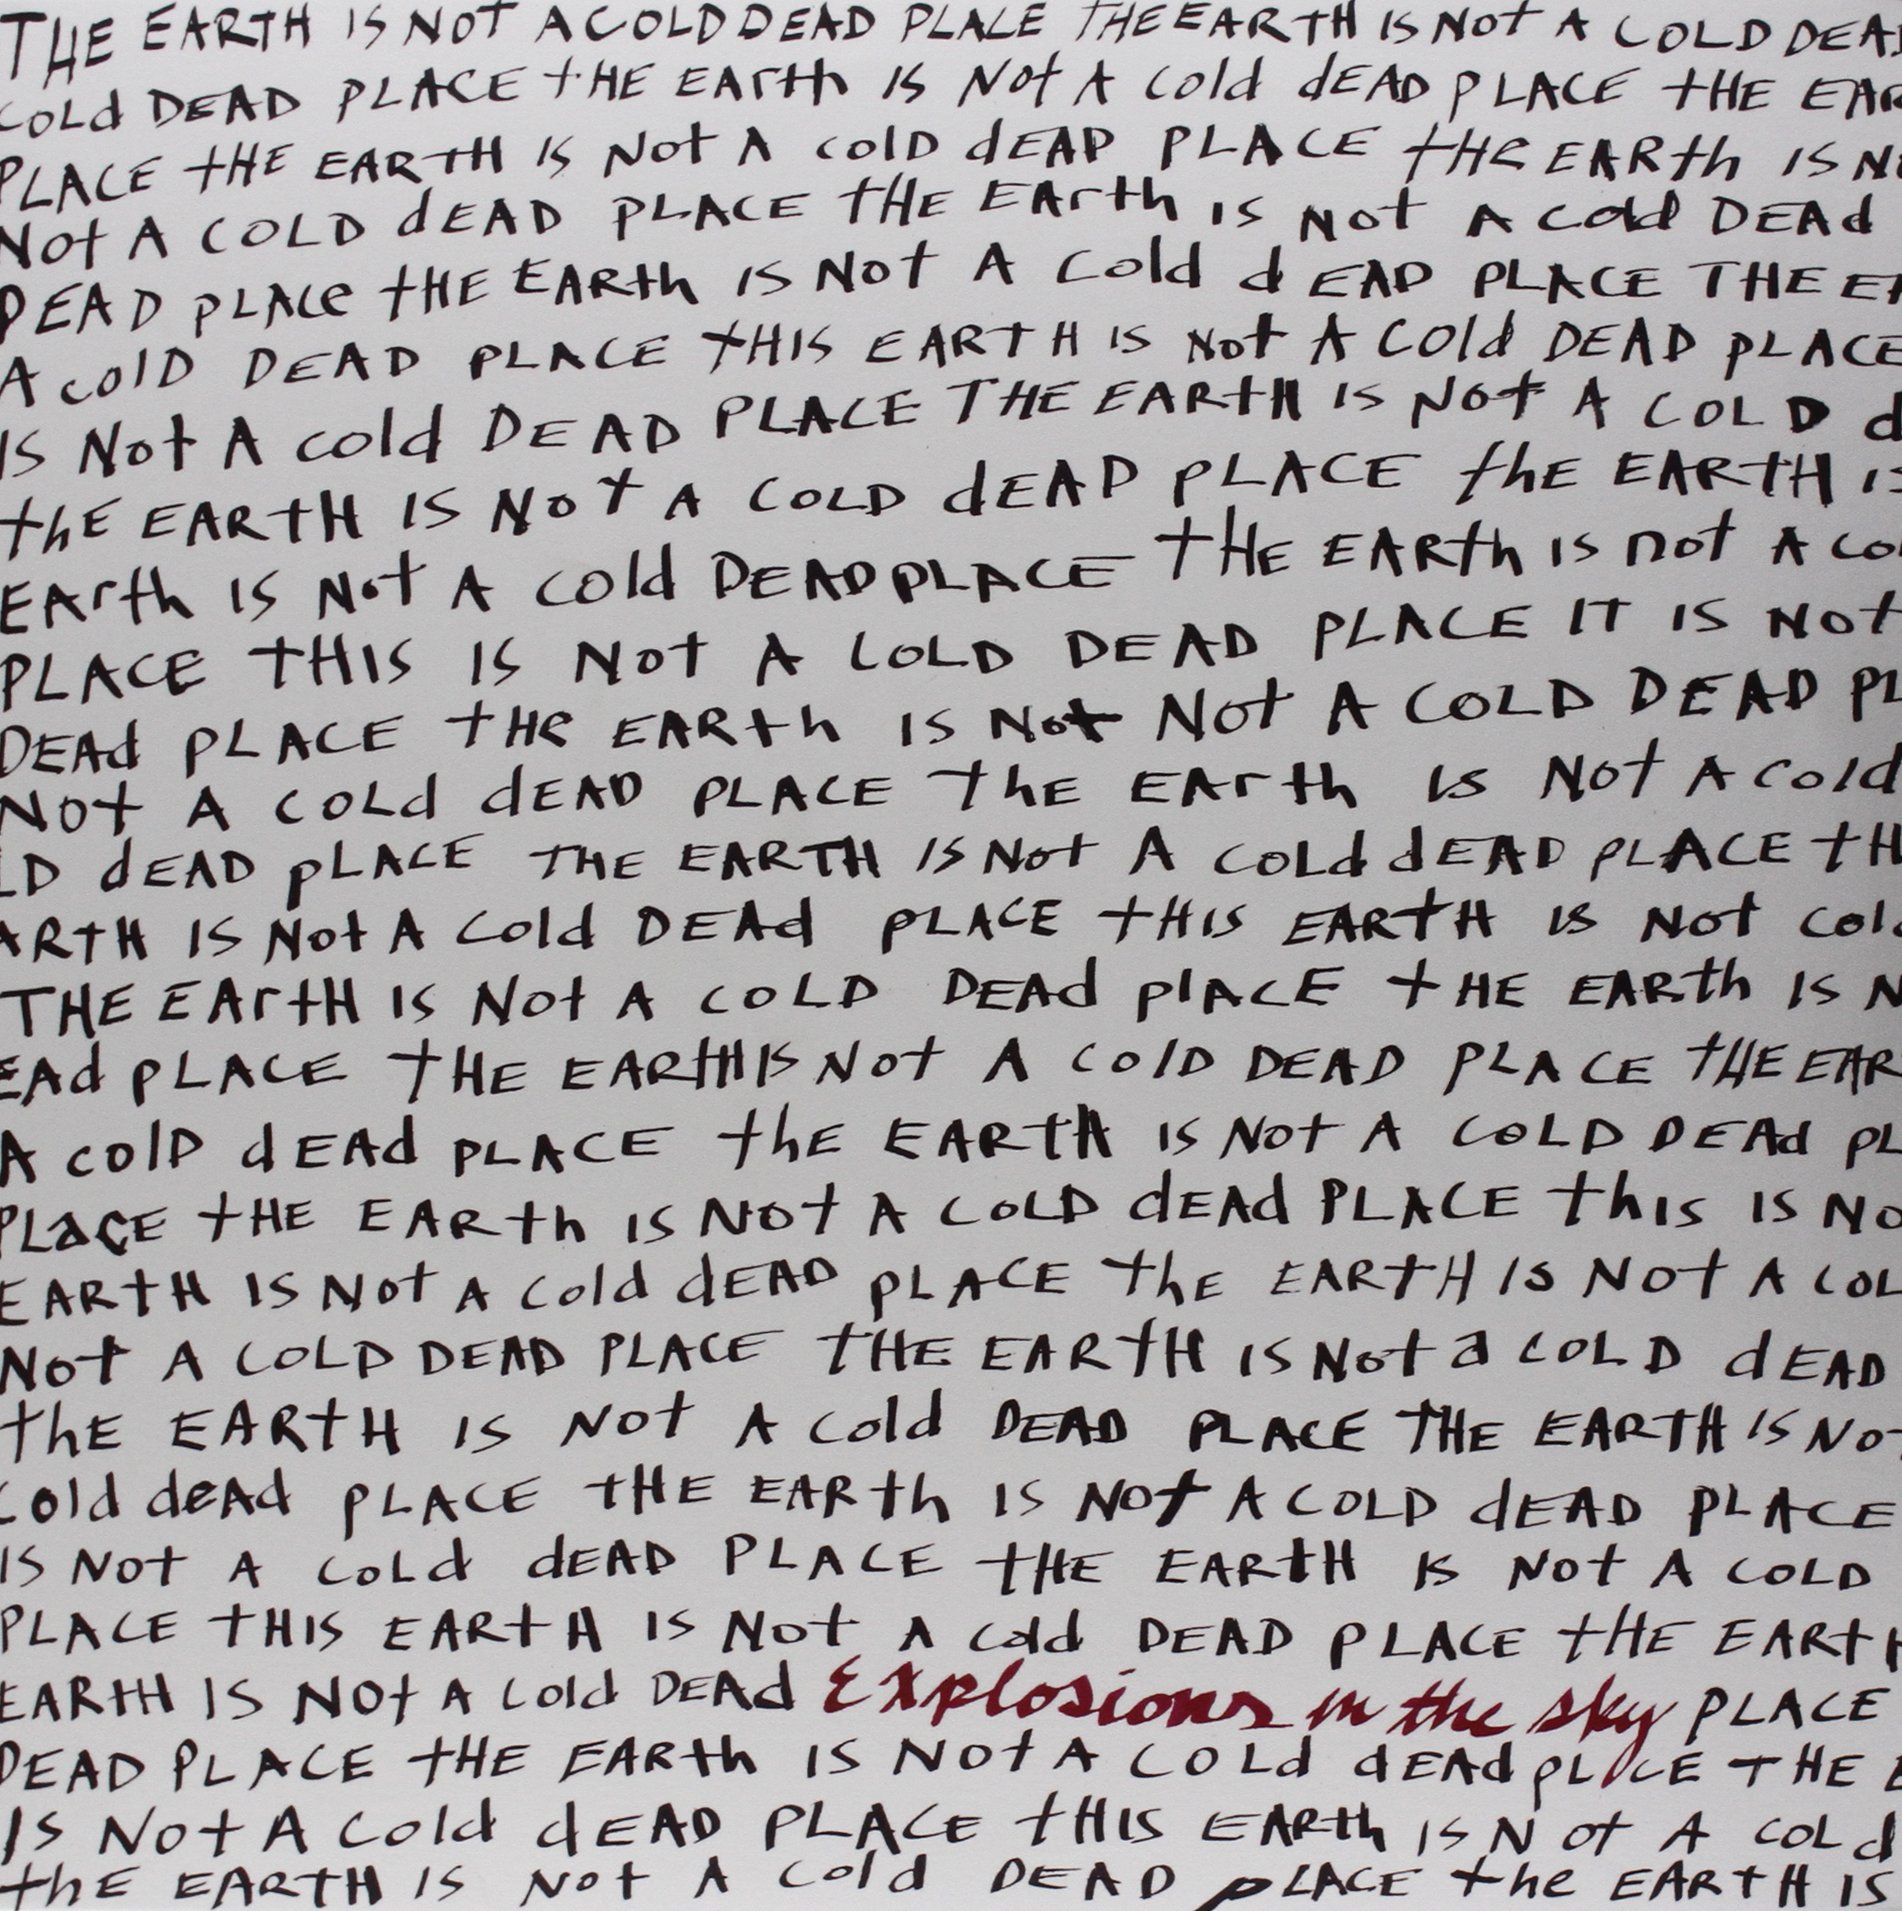 THE EARTH IS NOT A COLD DEAD PLACE THE EARTH IS NOT A COLD DEAD
COLd DEAD PLACE tHE EArth IS Not A Cold dEAD PLACE tHE EAR
PLACE tHE EARTH IS Not A colD dEAD PLACE tHe EARth IS NO
Not A COLD dEAD PLACE tHE EArth IS Not A Cold DEAd
DEAD pLACe tHE EARth IS Not A Cold dEAD PLACE THE EA
A colD DEAD PLACE tHIS EARTH IS Not A COld DEAD pLACE
IS Not A cold DEAD PLACE THE EARtH IS Not A COLD d
thE EARtH IS Not A COLD dEAD PLACE thE EARTH IS
EArth IS Not A cold DEADPLACE tHE EARth IS not A CO
PLACE tHIS IS Not A COLD DEAD PLACE IT IS NOt
DEAd PLACE tHe EARth IS Not Not A COLD DEAD PL
Not A COLd dEAD PLACE thE EArth IS Not A Cold
LD dEAD pLACE THE EARTH IS Not A COLd dEAD PLACE tH
ARtH IS Not A Cold DEAd PLACE tHIS EARtH IS Not Col
THE EArtH IS Not A COLD DEAd plACE tHE EARth IS N
EAd PLACE tHE EARtH IS Not A ColD DEAD PLACE tHE EAR
A colD dEAd PLACE thE EARtH IS Not A COLD DEAd PL
PLaCE tHE EARth IS Not A COLD dEAd PLACE thIS IS NO
EARtH IS Not A Cold dEAD PLACE thE EARtH IS Not A COL
Not A COLD DEAD PLACE tHE EARtH IS Not a COLD dEAD
thE EARtH IS Not A Cold DEAD PLACE THE EARTH IS No
Cold deAd PLACE tHE EARth IS Not A COLD dEAD PLACE
IS Not A COLd dEAD PLACE tHE EARtH IS Not A COLD
PLACE tHIS EARtH IS Not A Cold DEAD PLACE tHE EARtH
EARtH IS Not A Cold DEAd Explosions in the sky PLACE
DEAD PLACE tHE EARth IS Not A COLd dEAd pLACE THE E
IS Not A Cold dEAD PLACE tHIS EARth IS Not A COLd
thE EARtH IS Not A Cold DEAD pLACE the EARtH IS